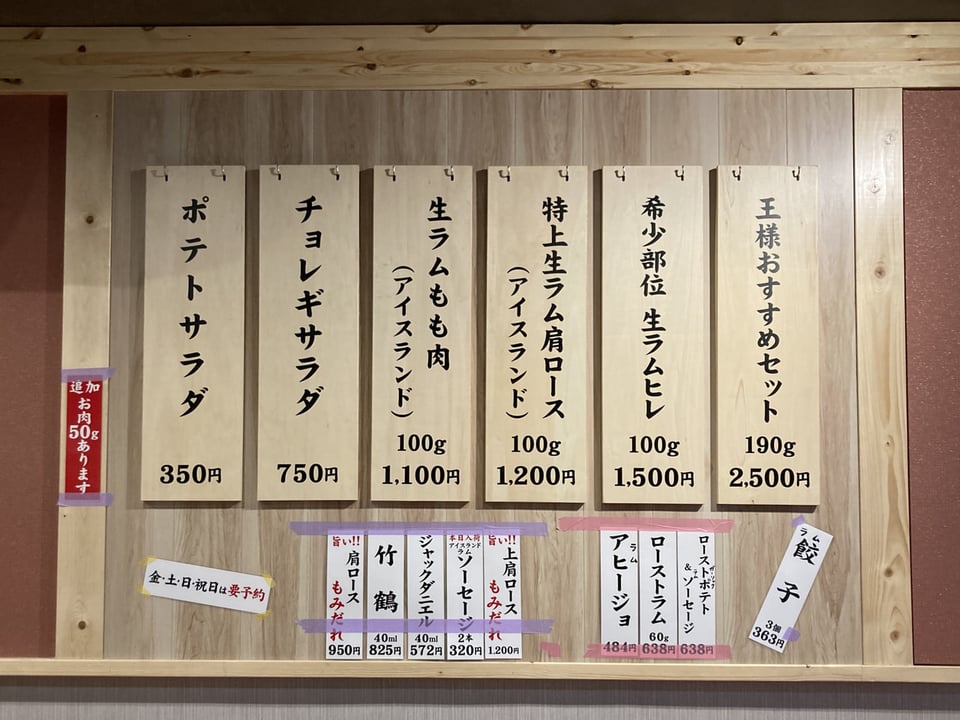 王様おすすめセット
190g
2,500円
希少部位 生ラムヒレ
100g
1,500円
特上生ラム肩ロース
(アイスランド)
100g
1,200円
生ラムもも肉
(アイスランド)
100g
1,100円
チョレギサラダ
750円
ポテトサラダ
350円
追加
お肉
50g
あります
金・土・日・祝日は要予約
旨い!!
肩ロース
もみだれ
950円
竹鶴
40ml
825円
ジャックダニエル
40ml
572円
本日入荷
アイスランド
ラム
ソーセージ
2本
320円
旨い!!
上肩ロース
もみだれ
1,200円
ラム
アヒージョ
484円
ローストラム
60g
638円
ローストポテト
&ソーセージ
638円
ラム
餃子
3個
363円